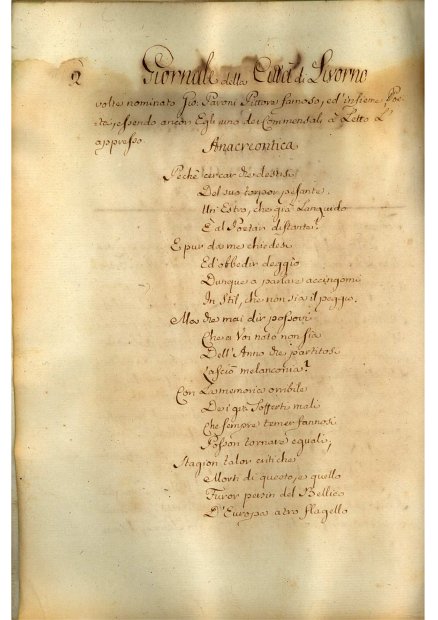 2 Giornale della Città di Livorno
volte nominato Gio: Pavoni Pittore famoso, ed' insieme Poe-
ta, essendo ancor Egli uno dei Commensali, à Letto L'
appresso
Anacreontica
Pechè cercar che destisi
Del suo torpor pesante
Un' Estro, che già Languido
E' al Poetar distante?
E pur da me chiedesi
Ed' obbedir deggio
Dunque a parlare accingomi
In Stil, che non sia il peggio.
Ma che mai dir possovi
Che a Voi noto non sia
Dell' Anno che partitosi
Lasciò melanconia?
Con La memoria orribile
Dei già Sofferti mali
Che sempre temer fannosi
Posson tornare eguali,
Stagion talor critiche
Morti di questo, e quello
Furor persin del Bellico
D'Europa atro flagello